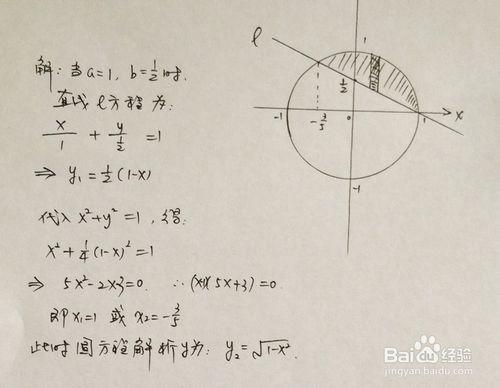 解：当a=1，b=½时，
直线l方程为：
x/1 + y/½ = 1
⇒ y₁=½(1-x)
代入x²+y²=1，得：
x²+¼(1-x)²=1
⇒ 5x²-2x-3=0. ∴(x-1)(5x+3)=0
即x₁=1 或 x₂=-3/5
此时圆方程解析y为：y₂=√(1-x²).
l
1
½
-1
-3/5
0
1
x
-1
Baidu经验
jingyan.baidu.com